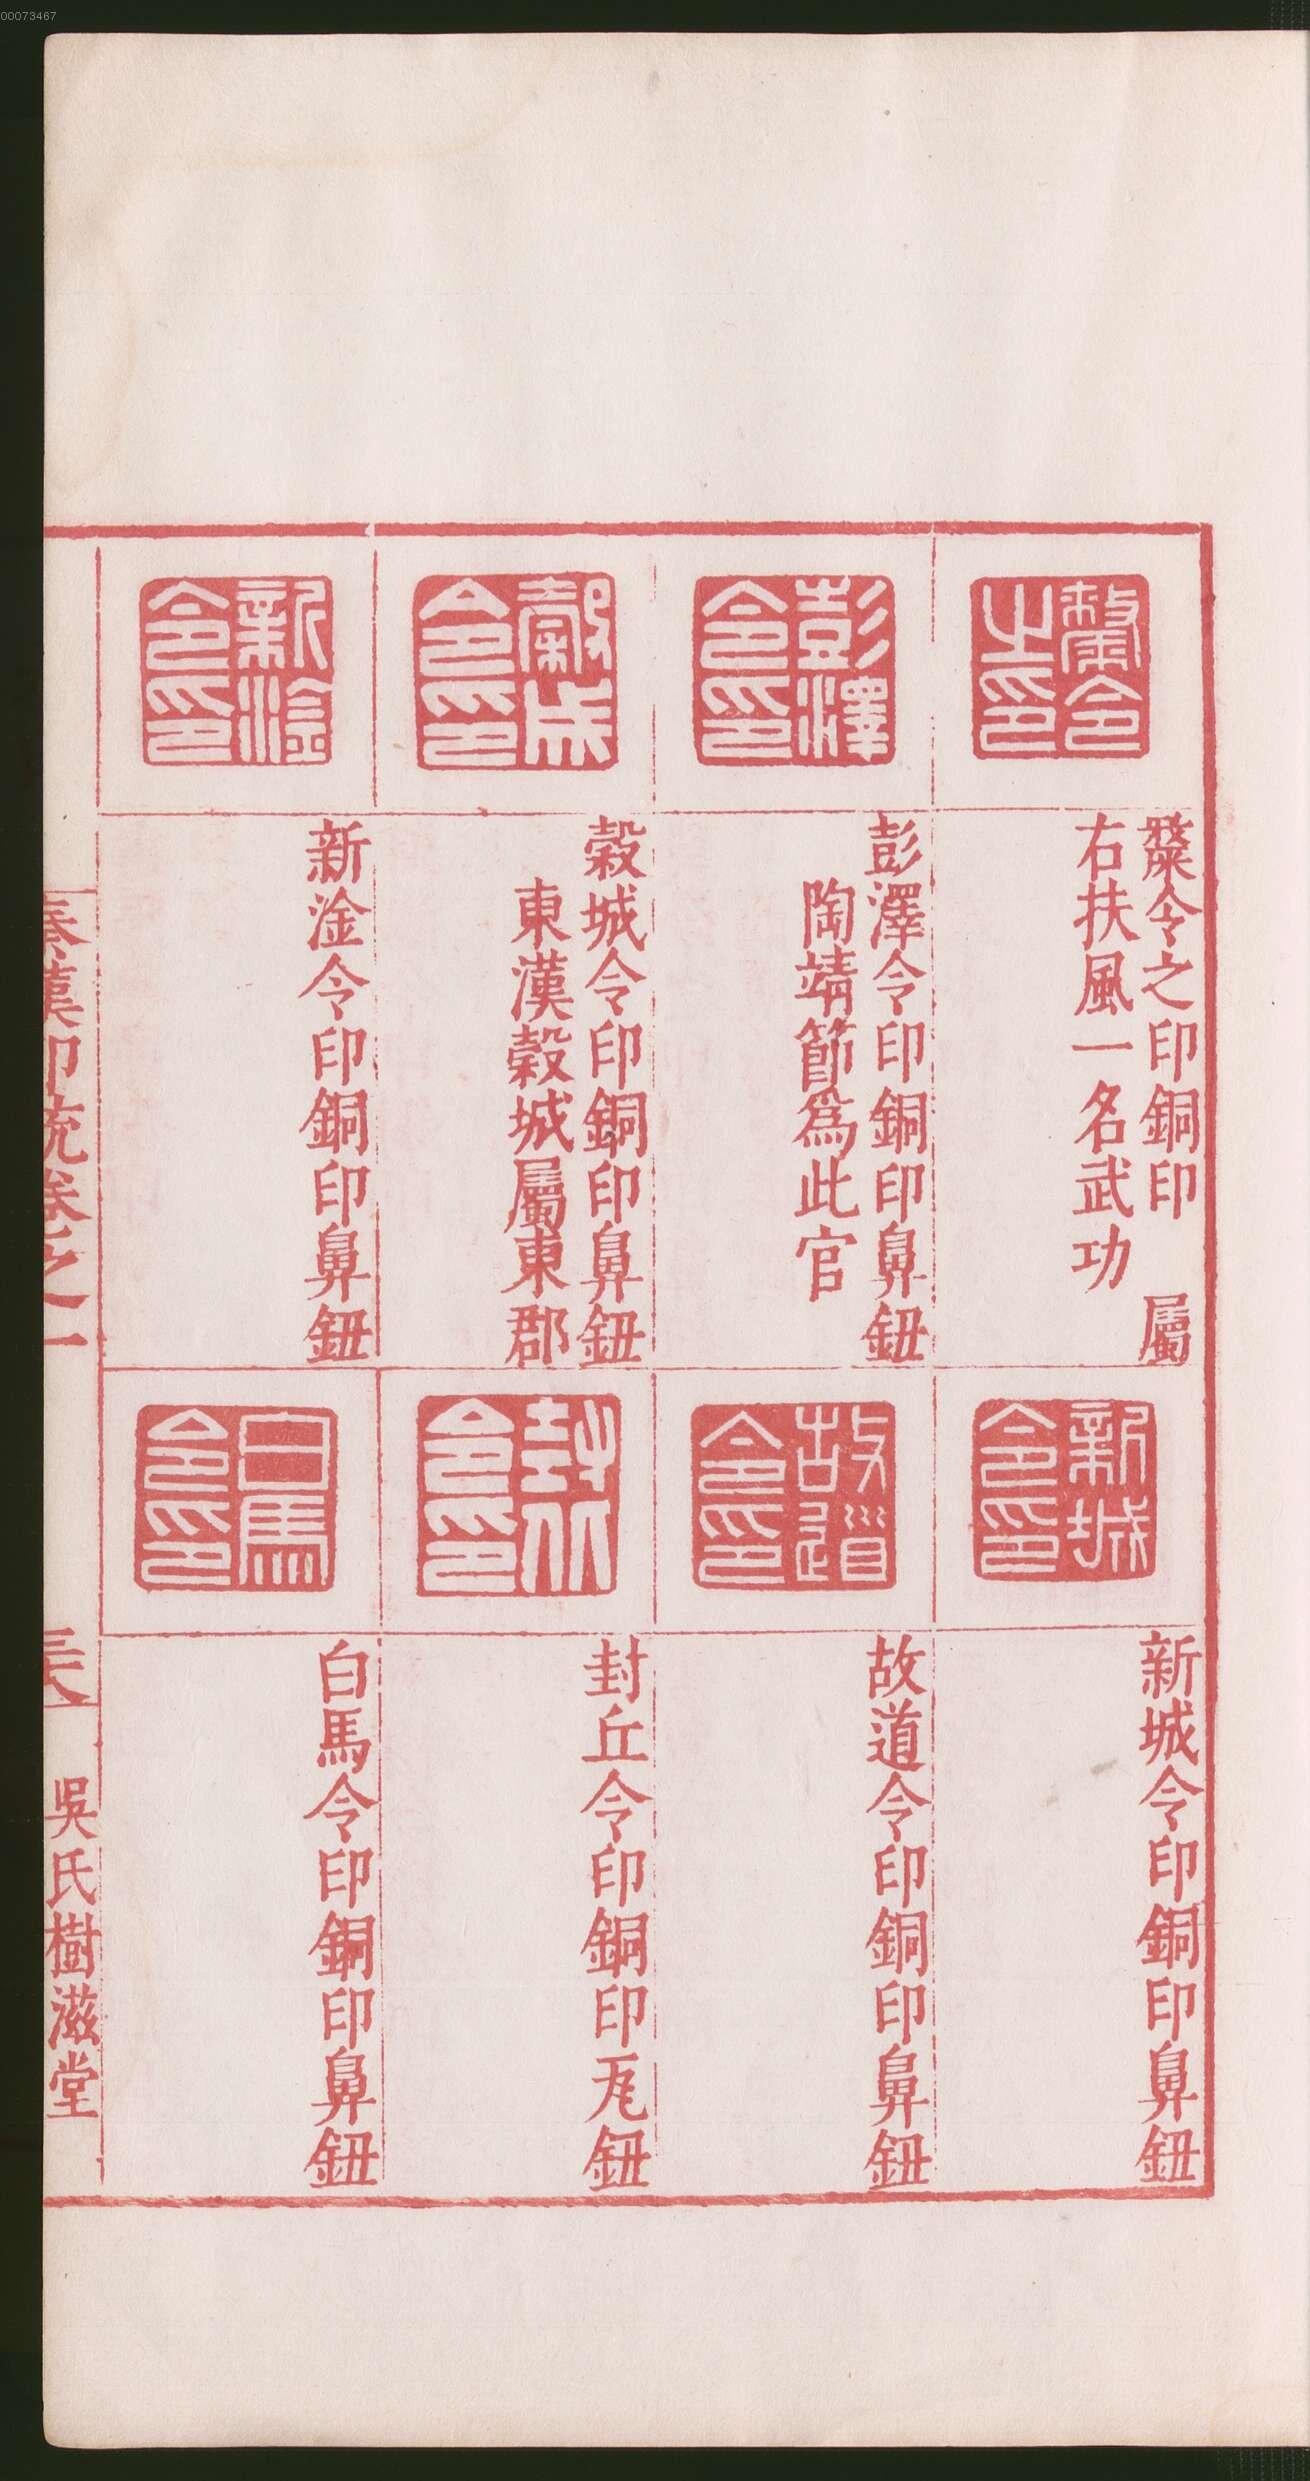 00073467
斄令之印
斄令之印銅印 屬
右扶風一名武功
彭澤令印
彭澤令印銅印鼻鈕
陶靖節爲此官
穀成令印
穀城令印銅印鼻鈕
東漢穀城屬東郡
新淦令印
新淦令印銅印鼻鈕
新城令印
新城令印銅印鼻鈕
故道令印
故道令印銅印鼻鈕
封丘令印
封丘令印銅印瓦鈕
白馬令印
白馬令印銅印鼻鈕
秦漢印統卷之一
吳氏樹滋堂